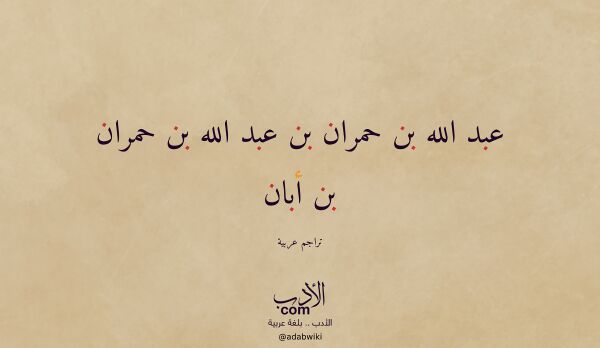 عبد الله بن حمران بن عبد الله بن حمران
بن أبان
تراجم عربية
الأدب
com
الأدب .. بلغة عربية
@adabwiki